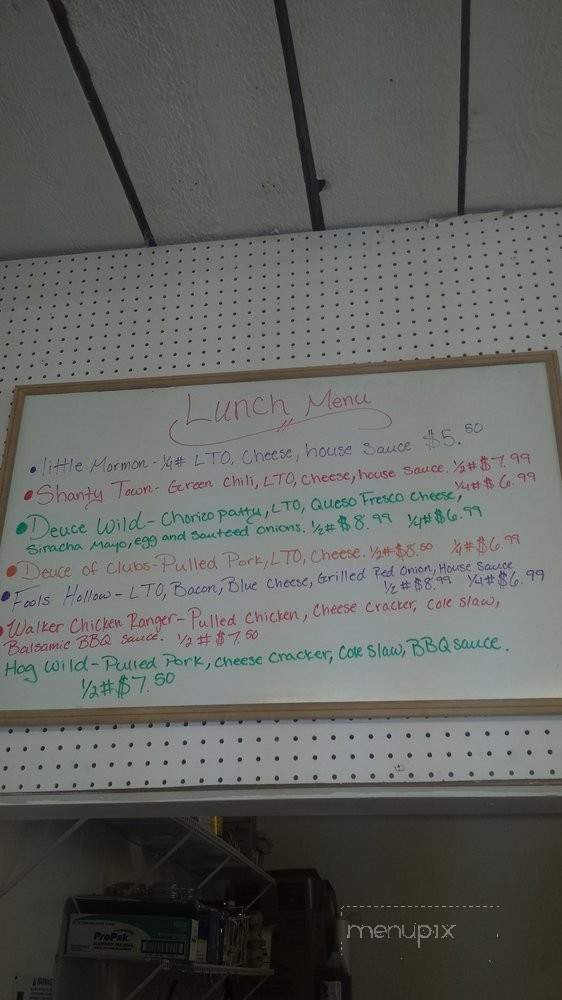 Lunch Menu
little Mormon - ¼# LTO, Cheese, house Sauce $5.50
Shanty Town - Green Chili, LTO, Cheese, house Sauce. ½# $7.99
¼# $6.99
Deuce Wild - Chorico patty, LTO, Queso Fresco Cheese,
Siracha Mayo, egg and Sauteed onions. ½# $8.99 ¼# $6.99
Deuce of Clubs - Pulled Pork, LTO, Cheese. ½# $8.50 ¼# $6.99
Fools Hollow - LTO, Bacon, Blue Cheese, Grilled Red Onion, House Sauce
½# $8.99 ¼# $6.99
Walker Chicken Ranger - Pulled Chicken, Cheese Cracker, Cole Slaw,
Balsamic BBQ Sauce. ½# $7.50
Hog Wild - Pulled Pork, Cheese Cracker, Cole Slaw, BBQ Sauce.
½# $7.50
ProPak
menupix